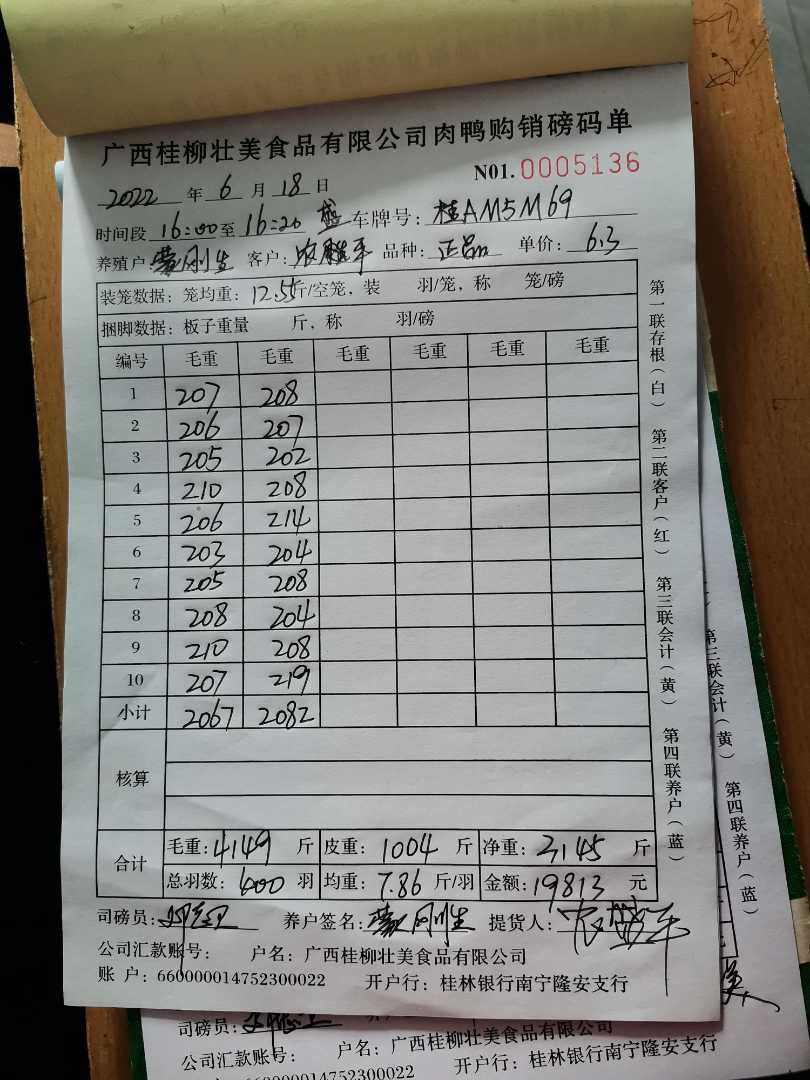 广西桂柳壮美食品有限公司肉鸭购销磅码单
N01. 0005136
2022 年 6 月 18 日
时间段 16:00 至 16:20 车牌号: 桂AM5M69
养殖户: 蒙刚生 客户: 品种: 正品 单价: 6.3
装笼数据: 笼均重: 12.55斤/空笼, 装 羽/笼, 称 笼/磅
捆脚数据: 板子重量 斤, 称 羽/磅
编号 毛重 毛重 毛重 毛重 毛重 毛重
1 207 208
2 206 207
3 205 202
4 210 208
5 206 214
6 203 204
7 205 208
8 208 204
9 210 208
10 207 219
小计 2067 2082
核算
合计
毛重: 4149 斤 皮重: 1004 斤 净重: 3145 斤
总羽数: 400 羽 均重: 7.86 斤/羽 金额: 19813 元
司磅员: 养户签名: 蒙刚生 提货人:
公司汇款账号: 户名: 广西桂柳壮美食品有限公司
账 户: 660000014752300022 开户行: 桂林银行南宁隆安支行
第一联存根(白) 第二联客户(红) 第三联会计(黄) 第四联养户(蓝)
第三联会计(黄) 第四联养户(蓝)
司磅员:
公司汇款账号: 户名: 广西桂柳壮美食品有限公司
660000014752300022 开户行: 桂林银行南宁隆安支行